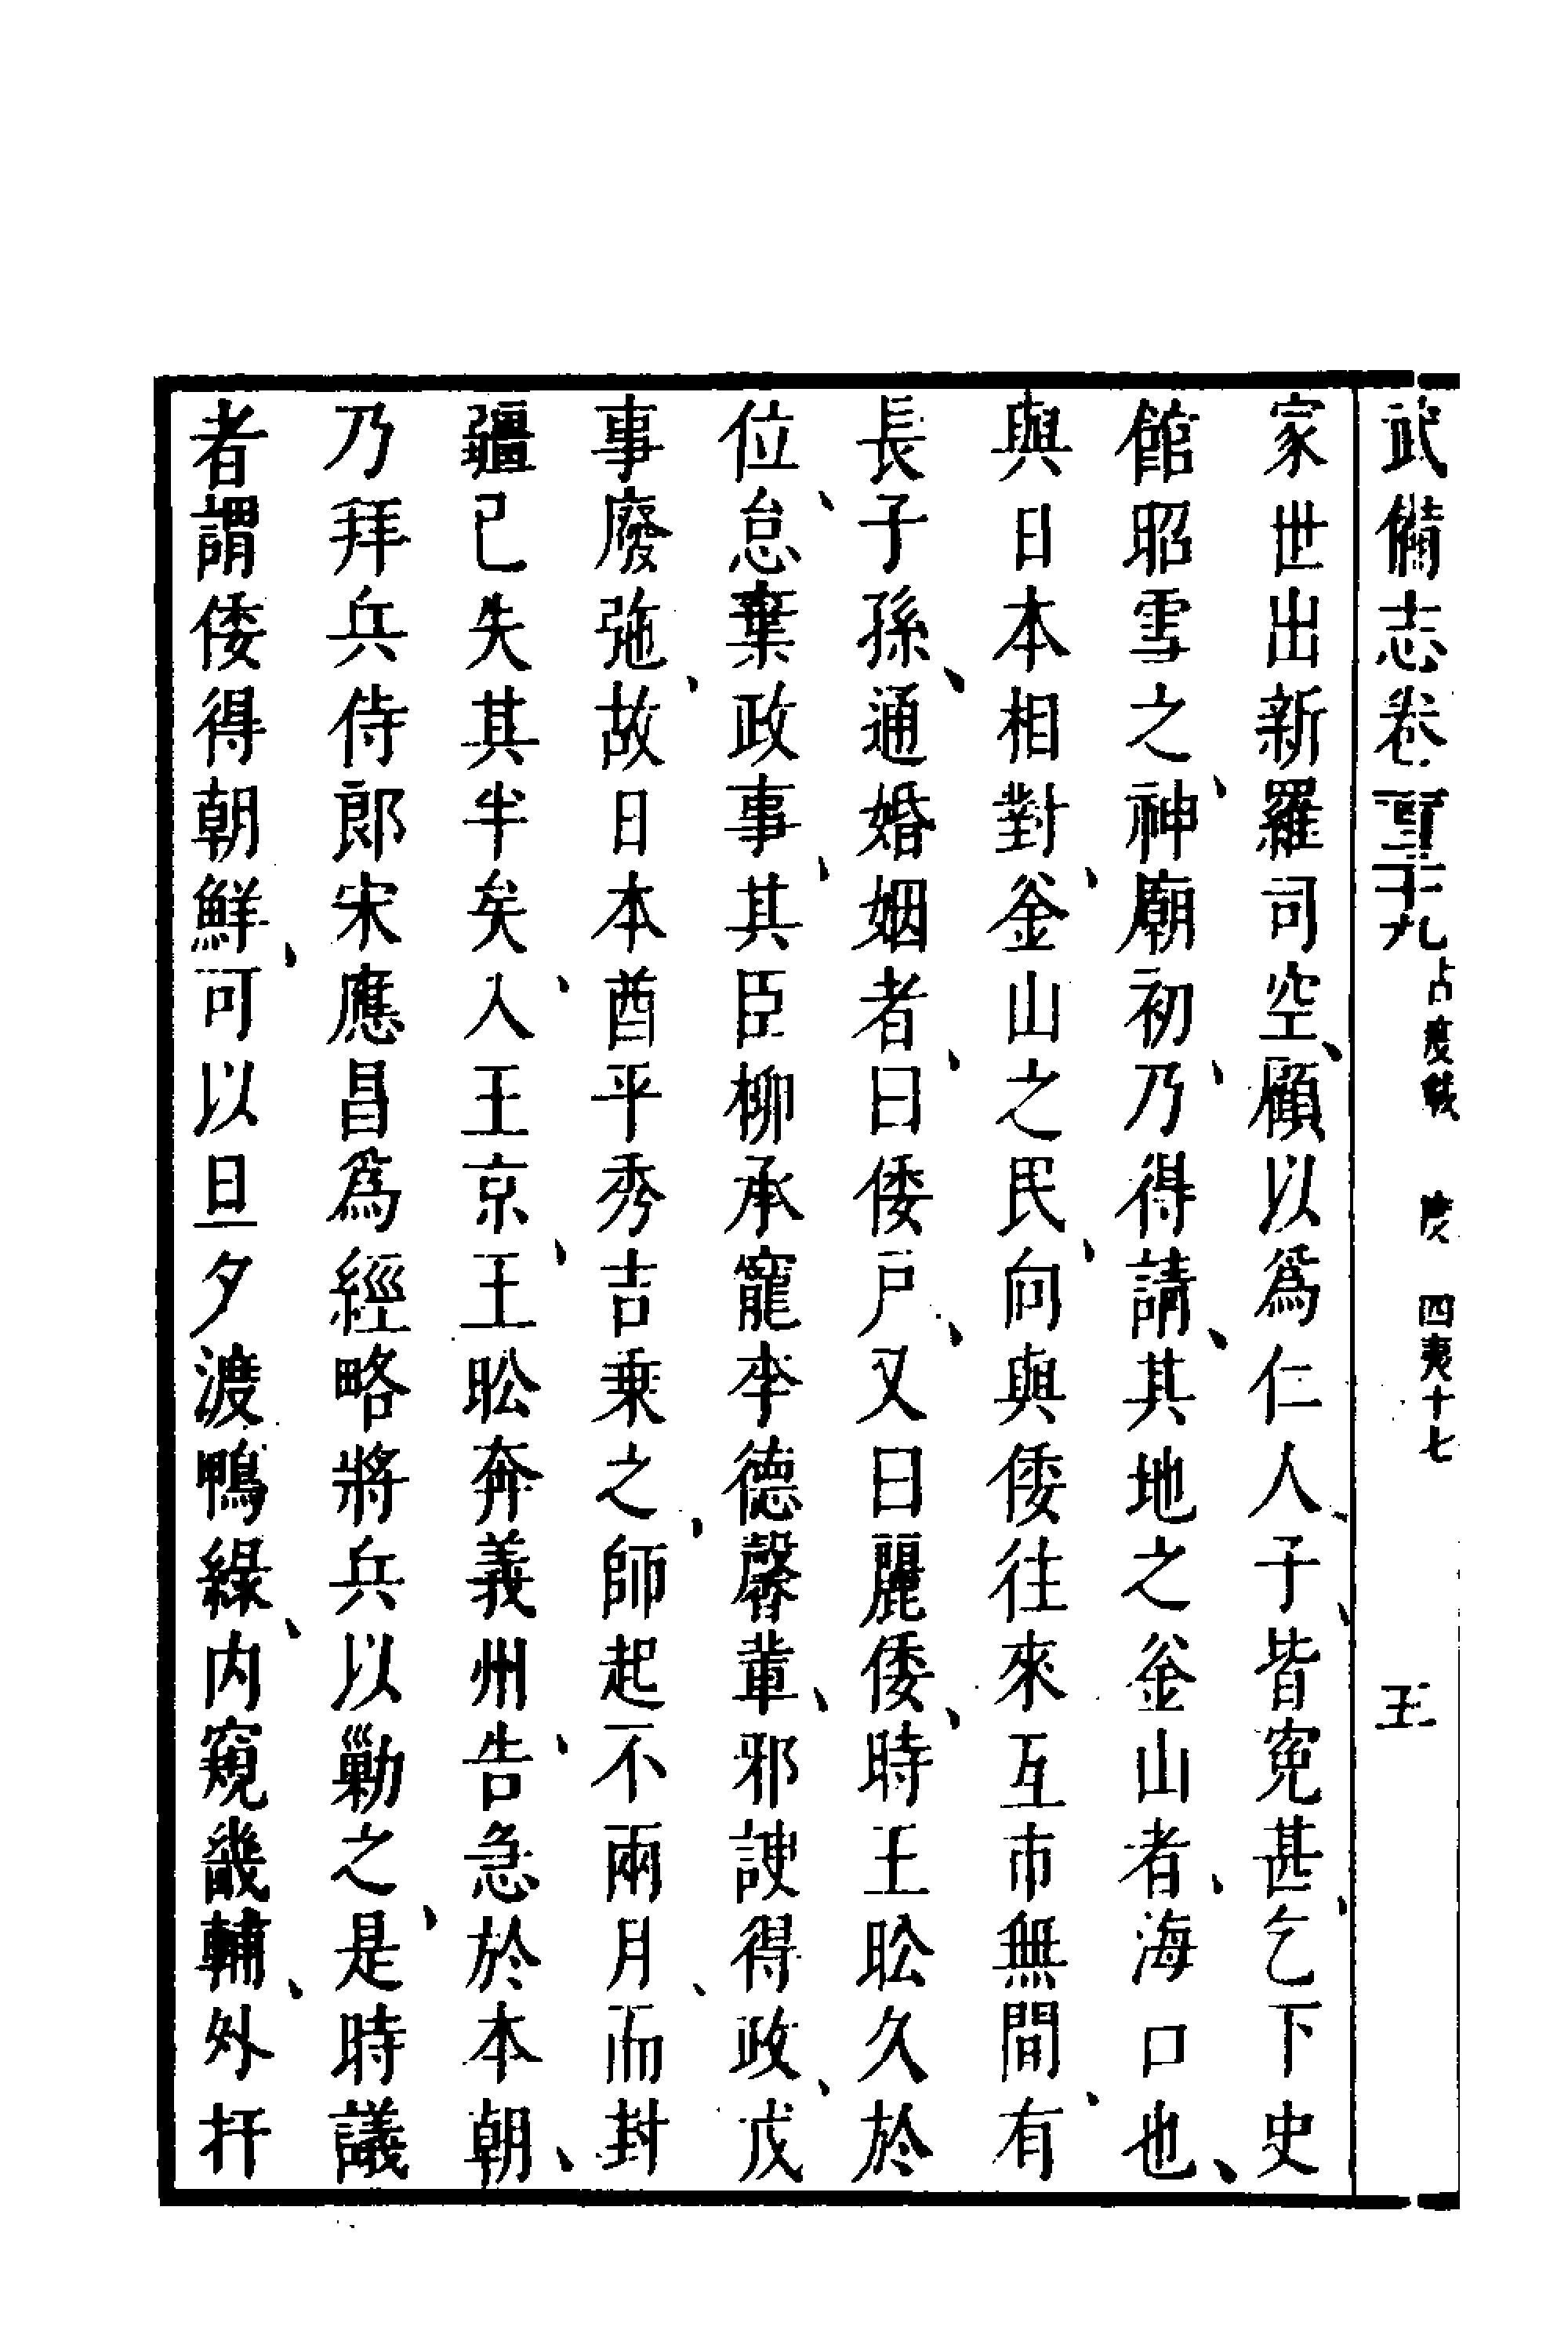 武備志卷二百三十九 占度載 度 四夷十七 王
家世出新羅司空、顧以爲仁人、子、皆寃甚、乞下史
館昭雪之、神廟初、乃得請、其地之釡山者、海口也、
與日本相對、釡山之民、向與倭往來互市無間、有
長子孫、通婚姻者、曰倭戶、又曰麗倭、時王昖久於
位、怠棄政事、其臣柳承寵李德馨輩、邪諛得政、戎
事廢弛、故日本酋平秀吉乗之、師起不兩月、而封
疆已失其半矣、入王京、王昖奔義州、告急於本朝、
乃拜兵侍郎宋應昌爲經略將兵以勦之、是時議
者謂倭得朝鮮、可以旦夕渡鴨綠、内窺畿輔、外扞